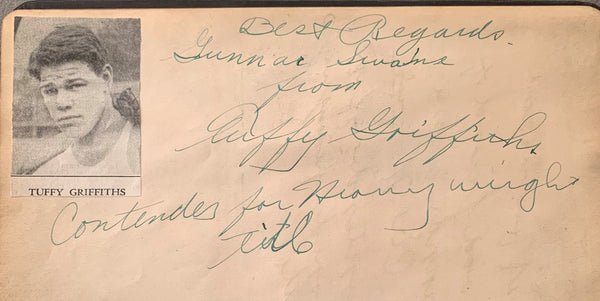 Best Regards.
Gunnar Swans
from
Tuffy Griffiths
TUFFY GRIFFITHS
Contender for Heavy weight
title